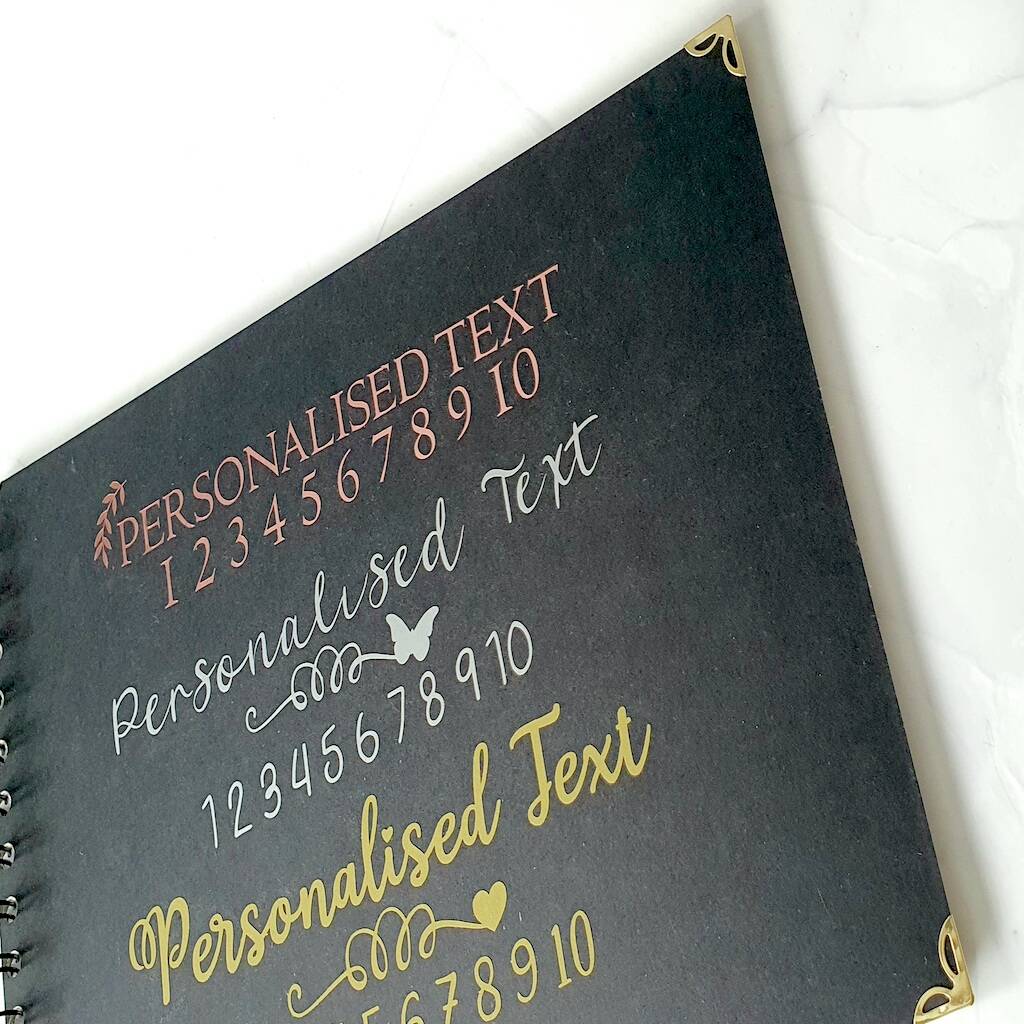 PERSONALISED TEXT
1 2 3 4 5 6 7 8 9 10
Personalised Text
1 2 3 4 5 6 7 8 9 10
Personalised Text
5 6 7 8 9 10